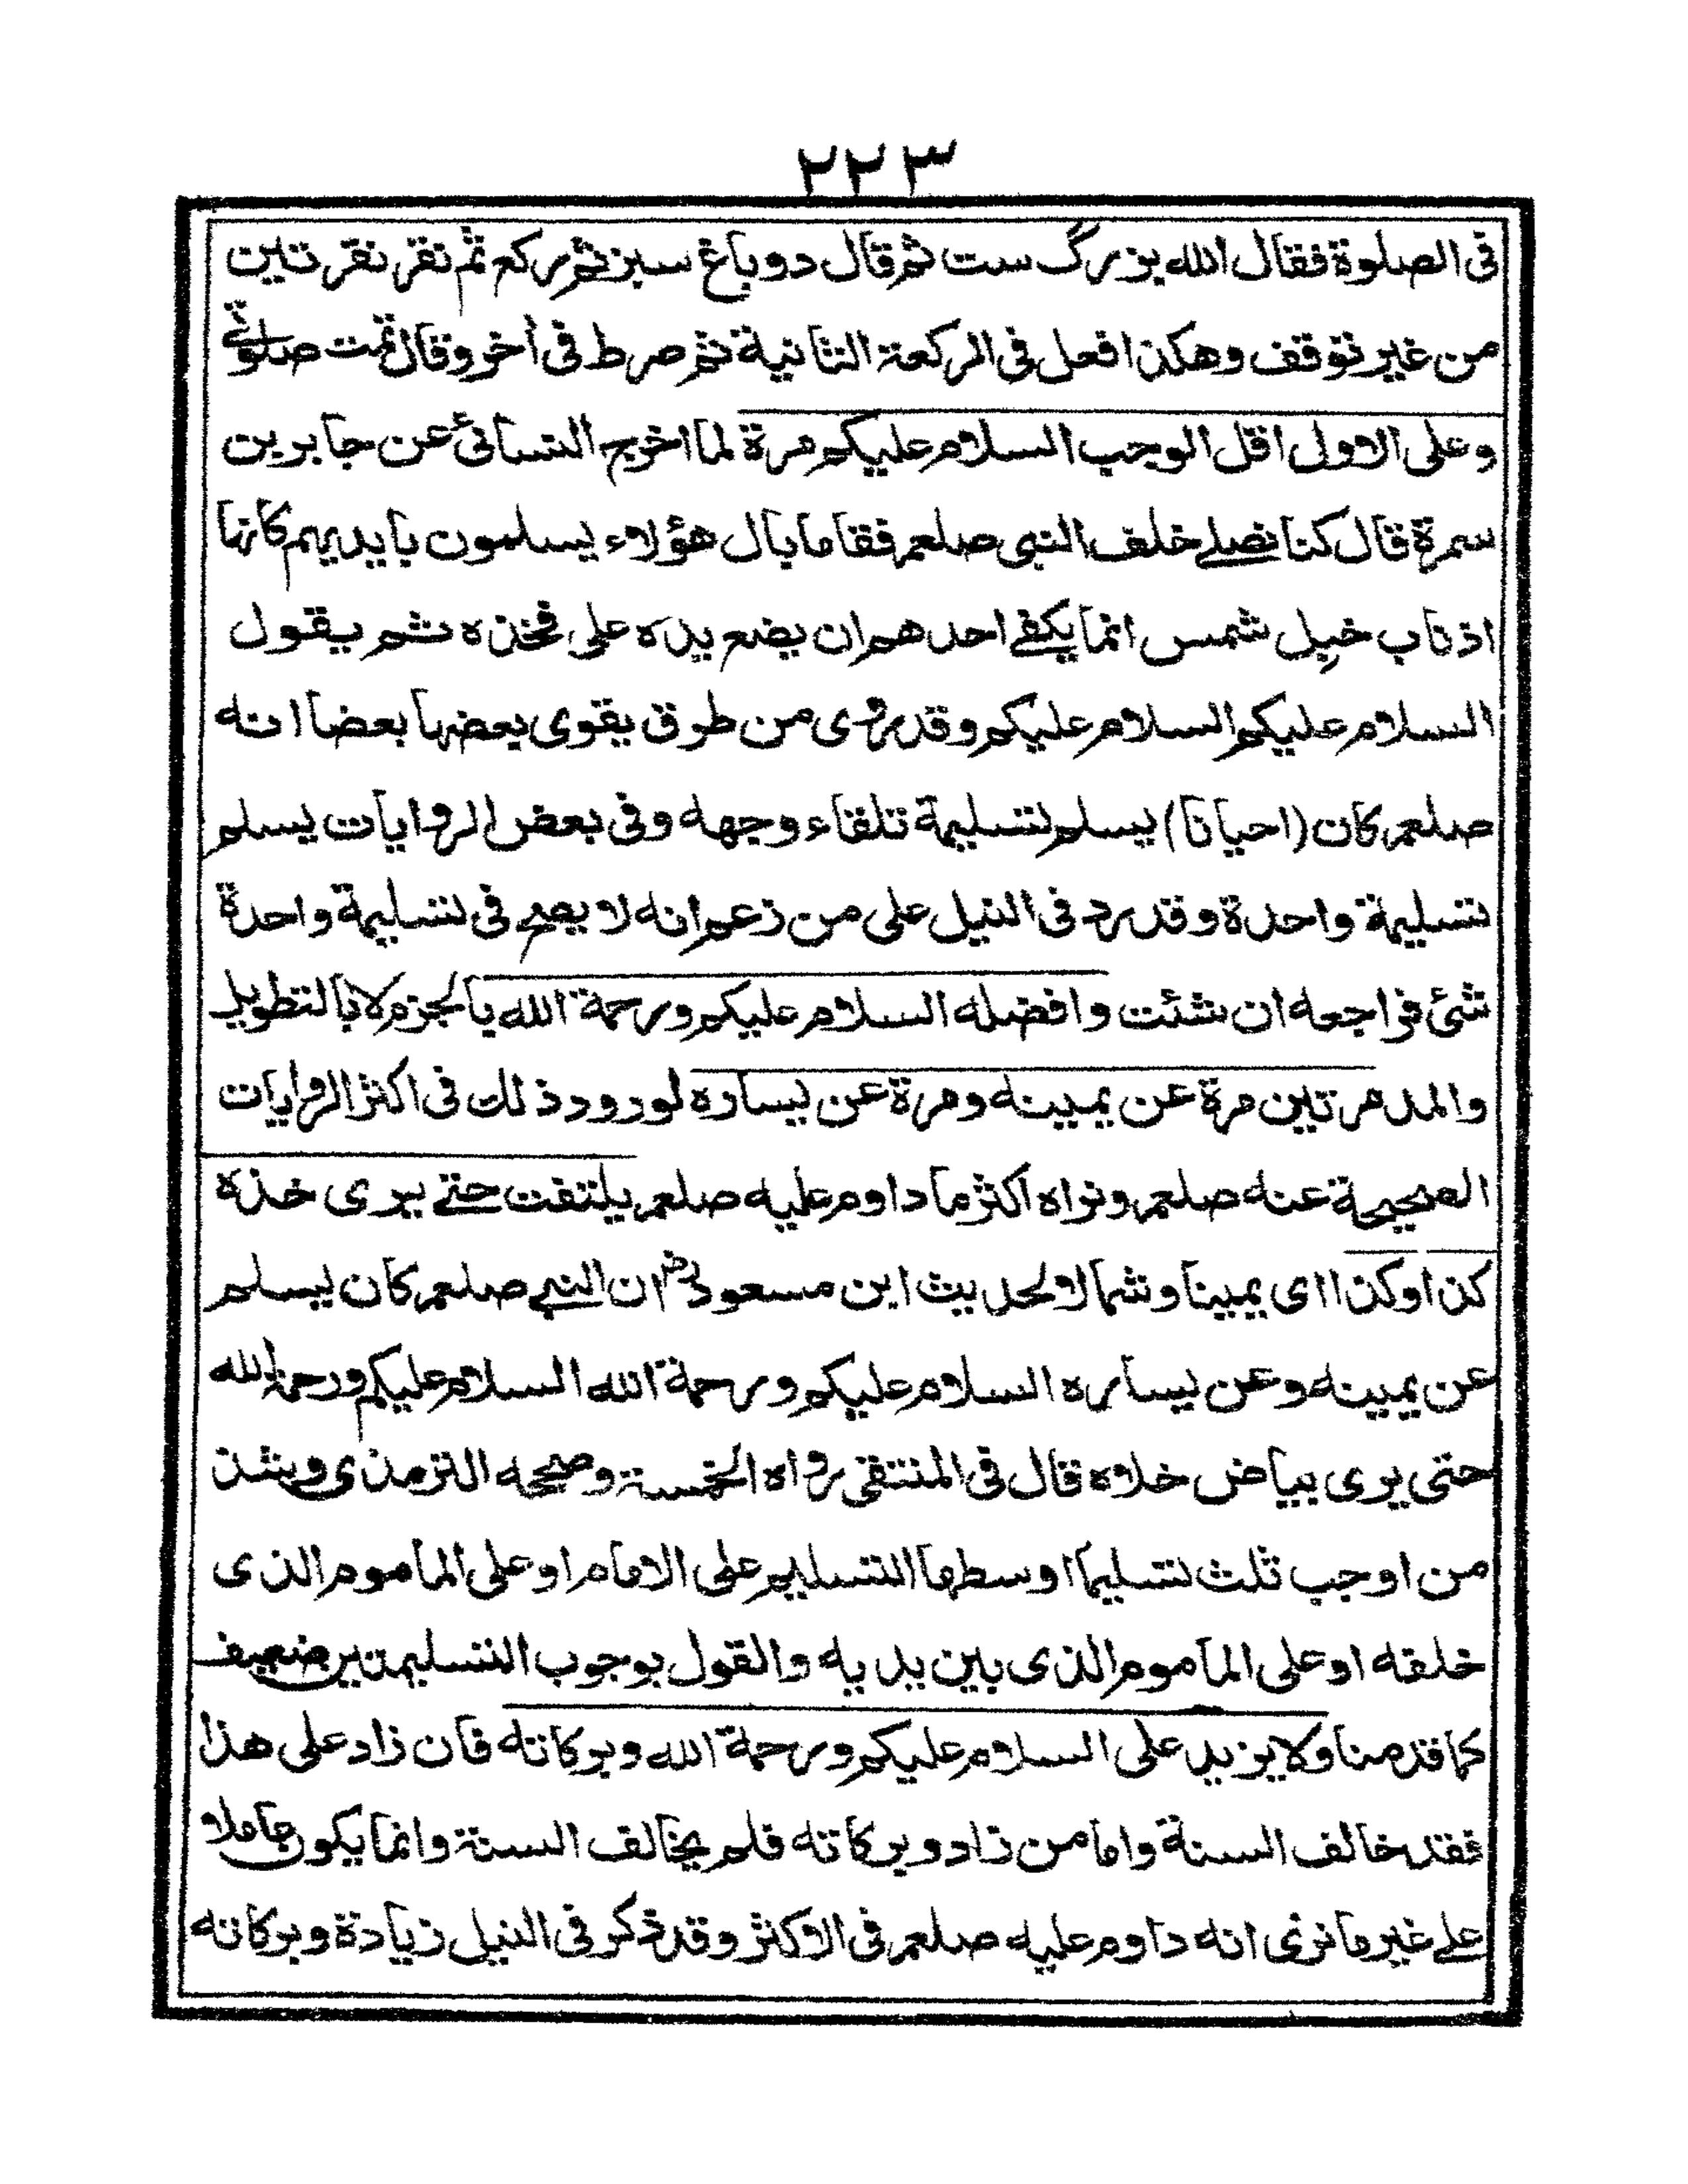 ٢٢٣
فى الصلوة فقال الله بزرگ ست ثم قال دو باغ سبز ثم ركع ثم نقر نقر تين
من غير توقف وهكذا فعل فى الركعة الثانية ثم ضرط فى أخر وقال تمت صلوتے
وعلى الاول اقل الوجب السلام عليكم مرة لما اخرج النسائى عن جابر بن
سمرة قال كنا نصلے خلف النبى صلعم فقا ما بال هؤلاء يسلمون بايديهم كانها
اذناب خيل شمس انما يكفے احدهم ان يضع يده على فخذه ثم يقول
السلام عليكم السلام عليكم وقد روى من طرق يقوى بعضها بعضا انه
صلعم كان (احيانا) يسلم تسليمة تلقاء وجهه وفى بعض الروايات يسلم
تسليمة واحدة وقد رد فى النيل على من زعم انه لا يصح فى تسليمة واحدة
شئ فراجعه ان شئت وافضله السلام عليكم ورحمة الله بالجزم لا بالتطويل
والمد مرتين مرة عن يمينه ومرة عن يساره لورود ذلك فى اكثر الروايات
الصحيحة عنه صلعم ونراه اكثر ما داوم عليه صلعم يلتفت حتے يرى خده
كذا وكذا اى يمينا وشمالا لحديث ابن مسعود رض ان النبے صلعم كان يسلم
عن يمينه وعن يساره السلام عليكم ورحمة الله السلام عليكم ورحمة الله
حتى يرى بياض خلاه قال فى المنتقى رواه الخمسة وصححه الترمذى وشذ
من اوجب ثلث تسليما اوسطها التسليم على الامام او على الماموم الذى
خلفه او على الماموم الذى بين يديه والقول بوجوب التسليمتين ضعيف
كما قدمنا ولا يزيد على السلام عليكم ورحمة الله وبركاته فان زاد على هذا
فقد خالف السنة واما من زاد وبركاته فلم يخالف السنة وانما يكون عاملا
علے غير ما نرى انه داوم عليه صلعم فى الاكثر وقد ذكر فى النيل زيادة وبركاته